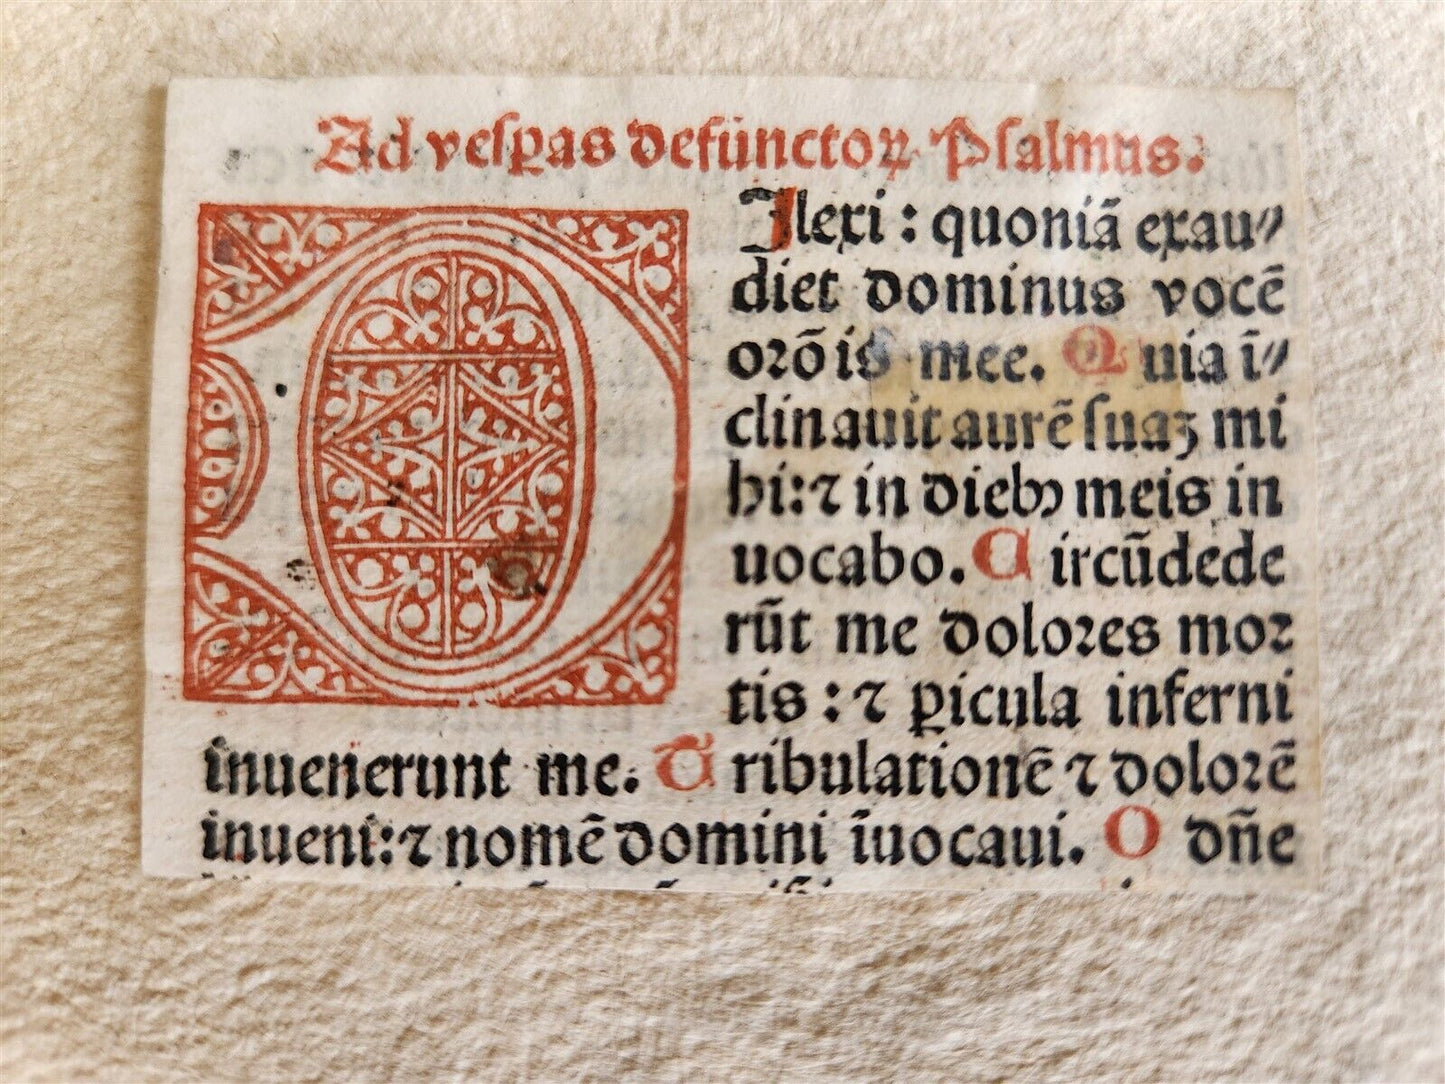 Ad veſꝑas defūnctoꝝ Pſalmus.
DIlexi : quoniā exau⸗
diet dominus vocē
orōis mee. Quia ī⸗
clinauit aurē ſuaꝫ mi
hi: ⁊ in diebꝰ meis in
uocabo. Circūdede
rūt me dolores mor
tis : ⁊ ꝑicula inferni
inuenerunt me. Tribulationē ⁊ dolorē
inueni: ⁊ nomē domini īuocaui. O dñe